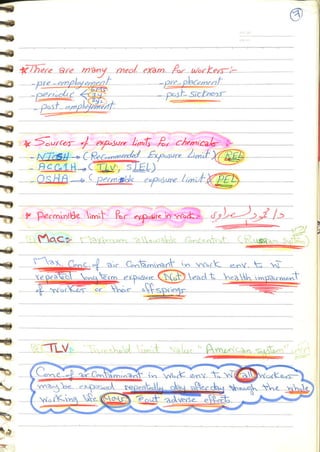 3
* There are many med exam for workers:-
- pre-employement - pre-placement
- periodic - post sickness
- post employement
* Sources of exposure limits for chemicals
- NIOSH → (Recommended Exposure Limit) REL
- ACGIH → (TLV, STEL)
- OSHA → (permissible exposure limit) PEL
* permissible limit for exposure in work:-
MAC: Maximum allowable concentrat (Russian system)
Max Conc of air Contaminant in work env. to wc
repeated long term exposure Not lead to health impairment
of worker or their offsprings
TLV: Threshold limit value "American system"
Conc of air Contaminant in work env. to wc all workers
may be exposed repeatedly day after day through the whole
working life e'out adverse effects